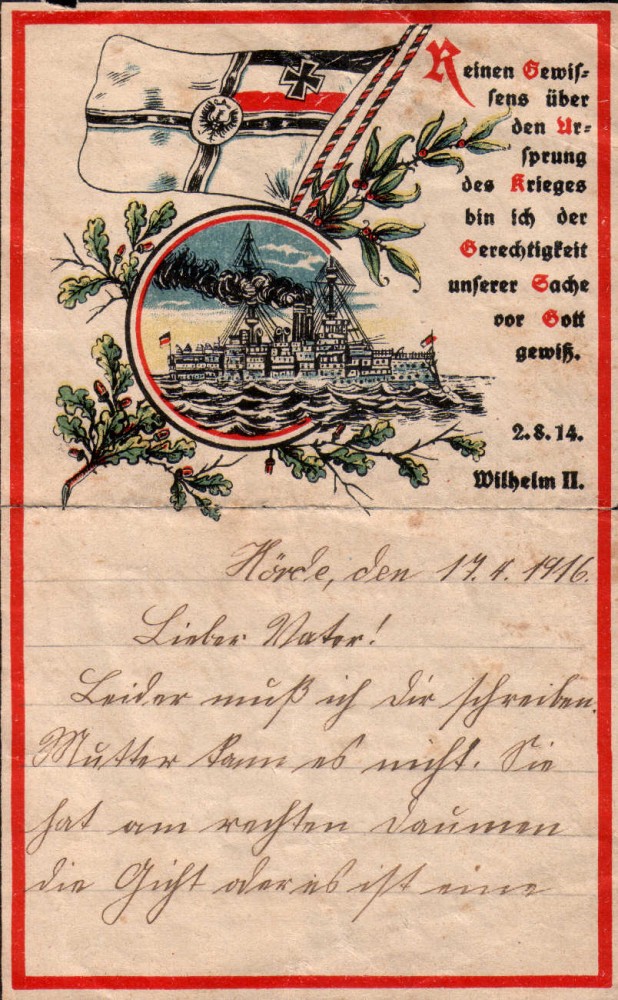 Reinen Gewis-
sens über
den Ur-
sprung
des Krieges
bin ich der
Gerechtigkeit
unserer Sache
vor Gott
gewiß.
2.8.14.
Wilhelm II.
Hörde, den 17.4.1916.
Lieber Vater!
Leider muß ich dir schreiben.
Mutter kann es nicht. Sie
hat am rechten Daumen
die Gicht oder es ist eine